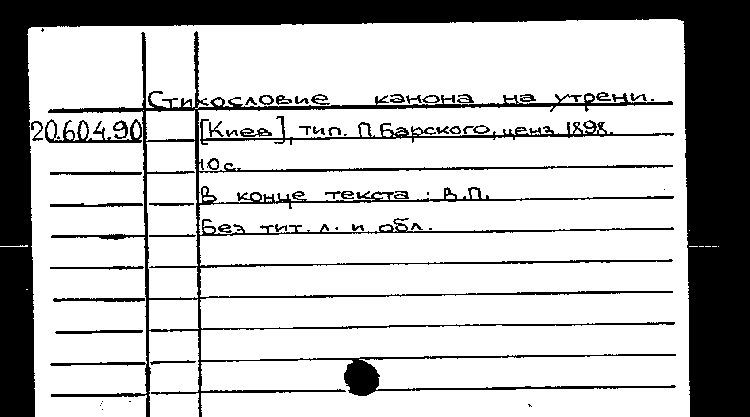 Стихословие канона на утрени.
20.604.90 [Киев], тип. П. Барского, ценз. 1898.
10 с.
В конце текста: В.П.
Без тит. л. и обл.